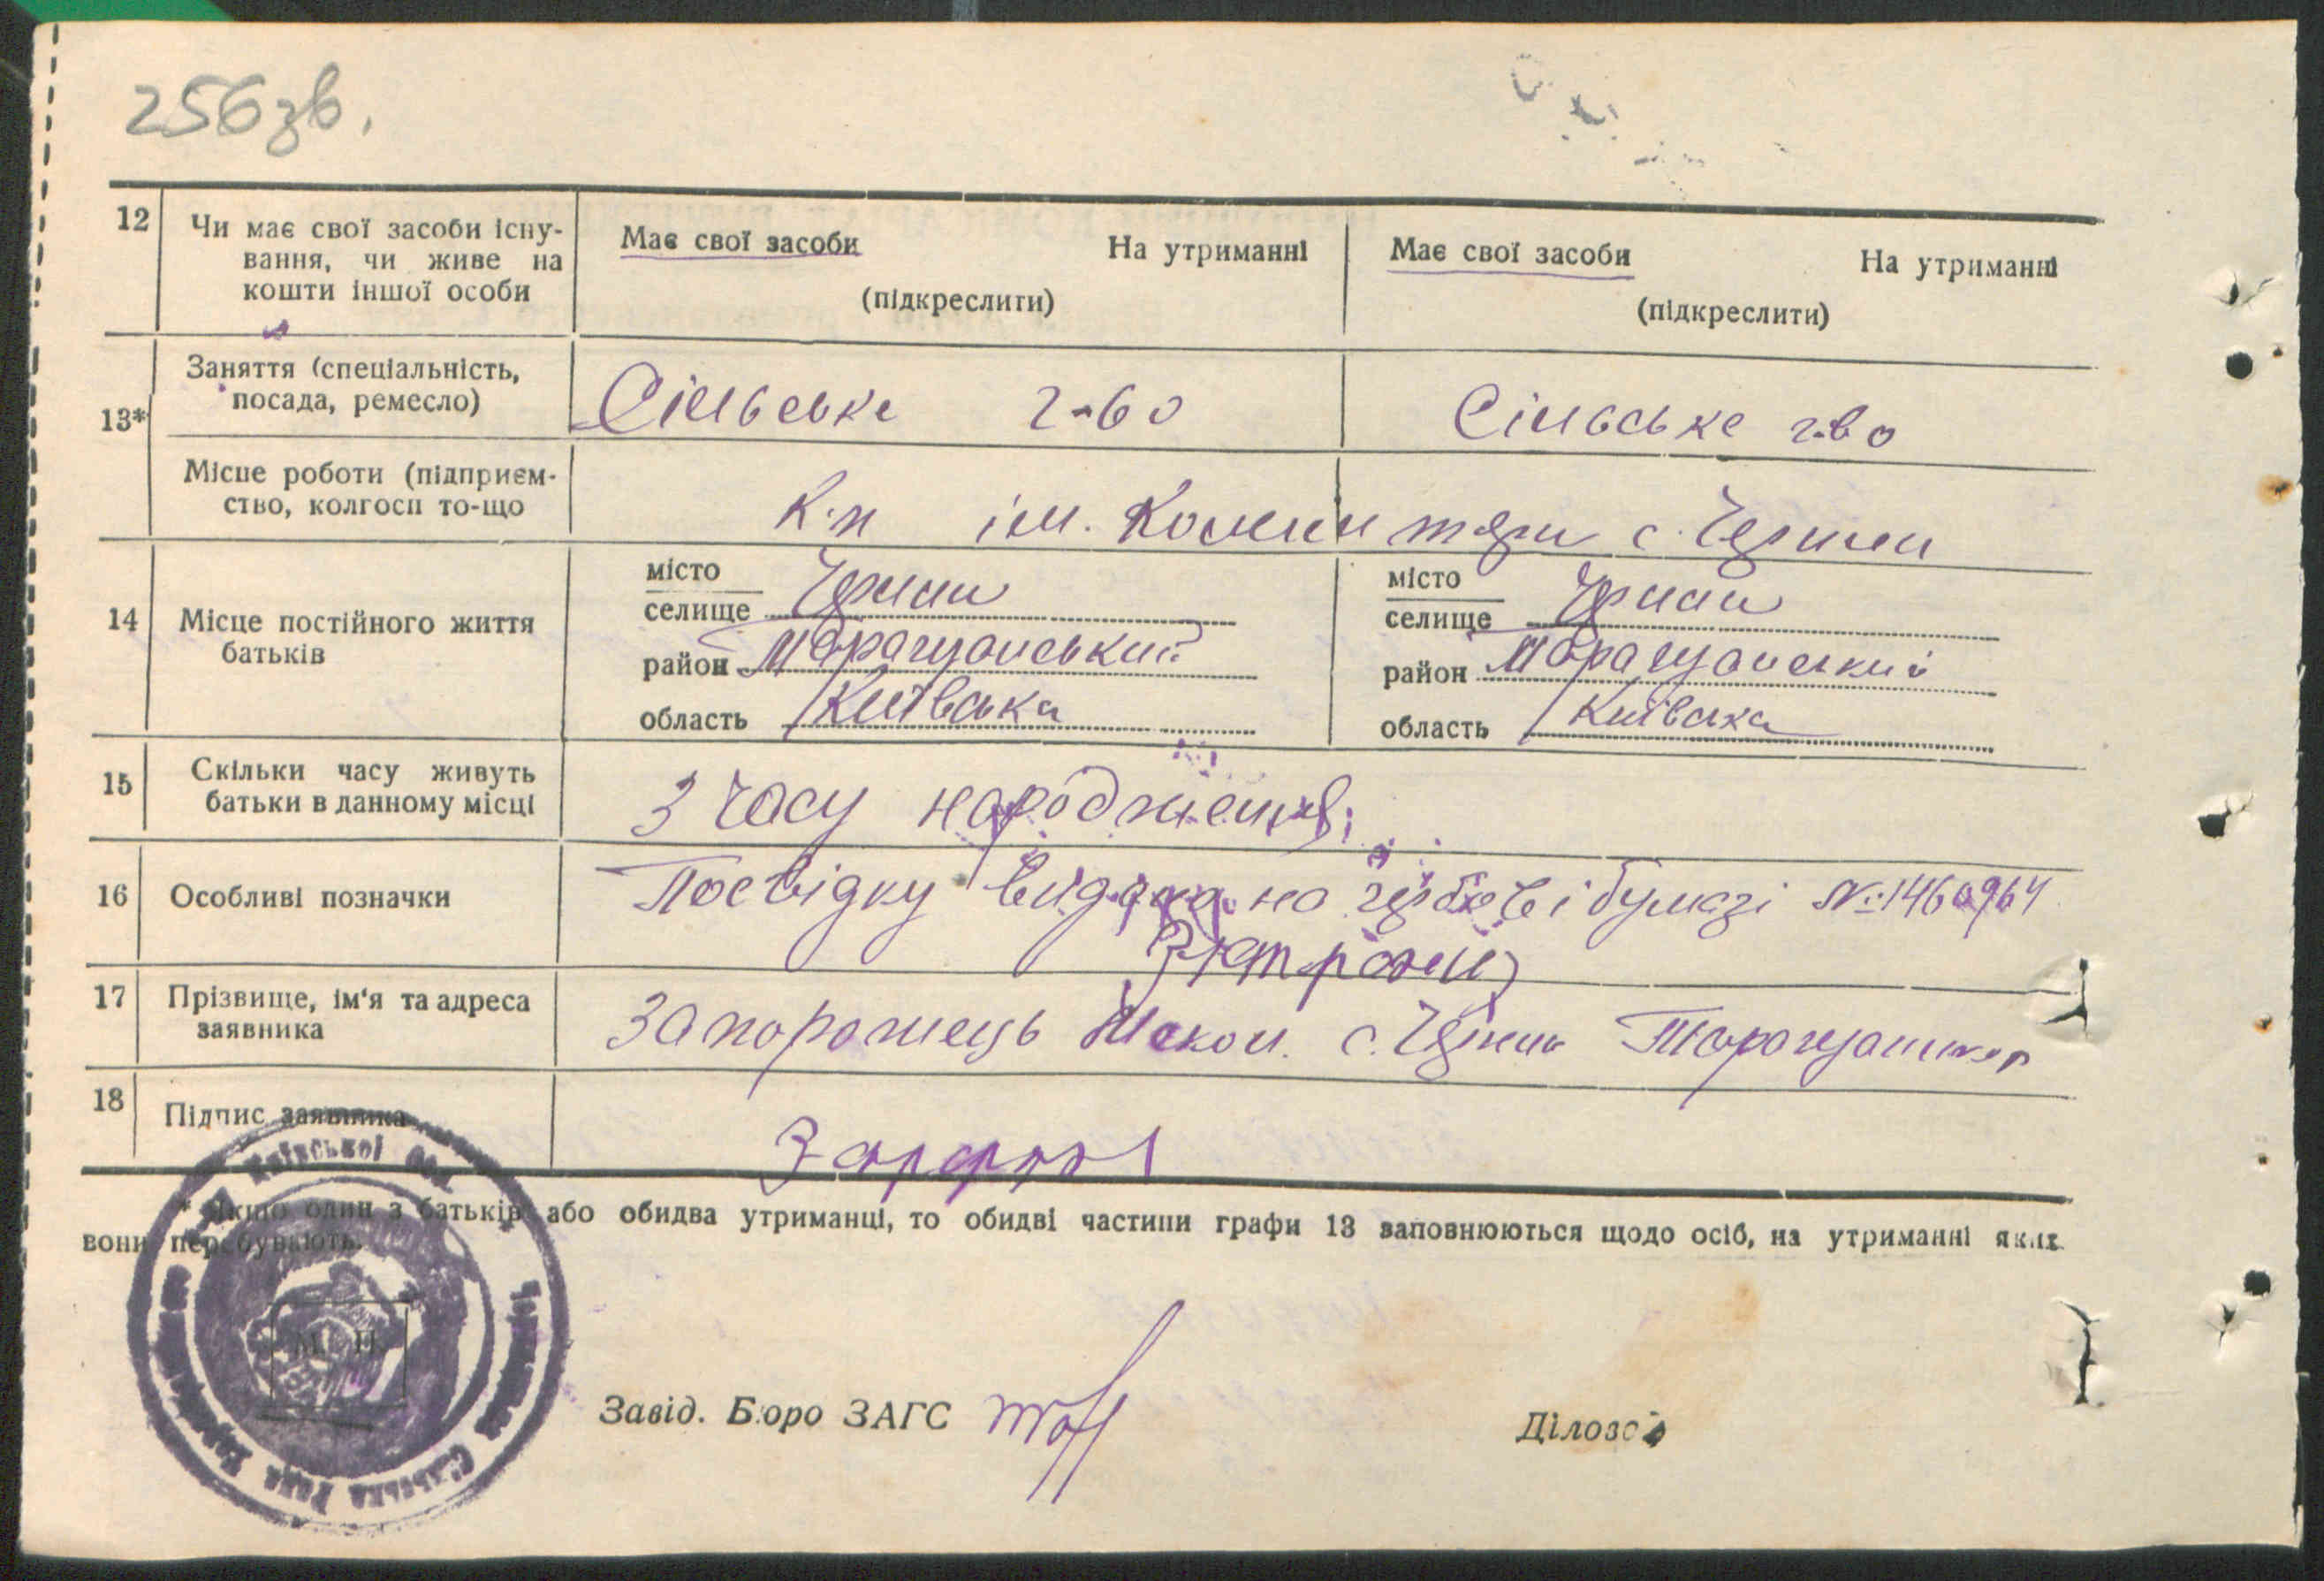 256зв.
12 Чи має свої засоби існу-
вання, чи живе на
кошти іншої особи
Має свої засоби На утриманні
(підкреслити)
Має свої засоби На утриманні
(підкреслити)
13*
Заняття (спеціальність,
посада, ремесло)
Сільське г-во
Сільське г-во
Місце роботи (підприєм-
ство, колгосп то-що
К-п ім. Комінтерн с. Черкин
14 Місце постійного життя
батьків
місто
селище
район Таращанський
область Київська
місто
селище
район Таращанський
область Київська
15 Скільки часу живуть
батьки в данному місці
З часу народження
16 Особливі позначки
Посвідку видано на гербові бумазі №1460964
17 Прізвище, ім'я та адреса
заявника
Запорожець с.
18 Підпис заявника
* Якщо один з батьків або обидва утриманці, то обидві частини графи 13 заповнюються щодо осіб, на утриманні яких
вони перебувають.
Київської
Сільська Рада
М. П.
Завід. Бюро ЗАГС
Діловод